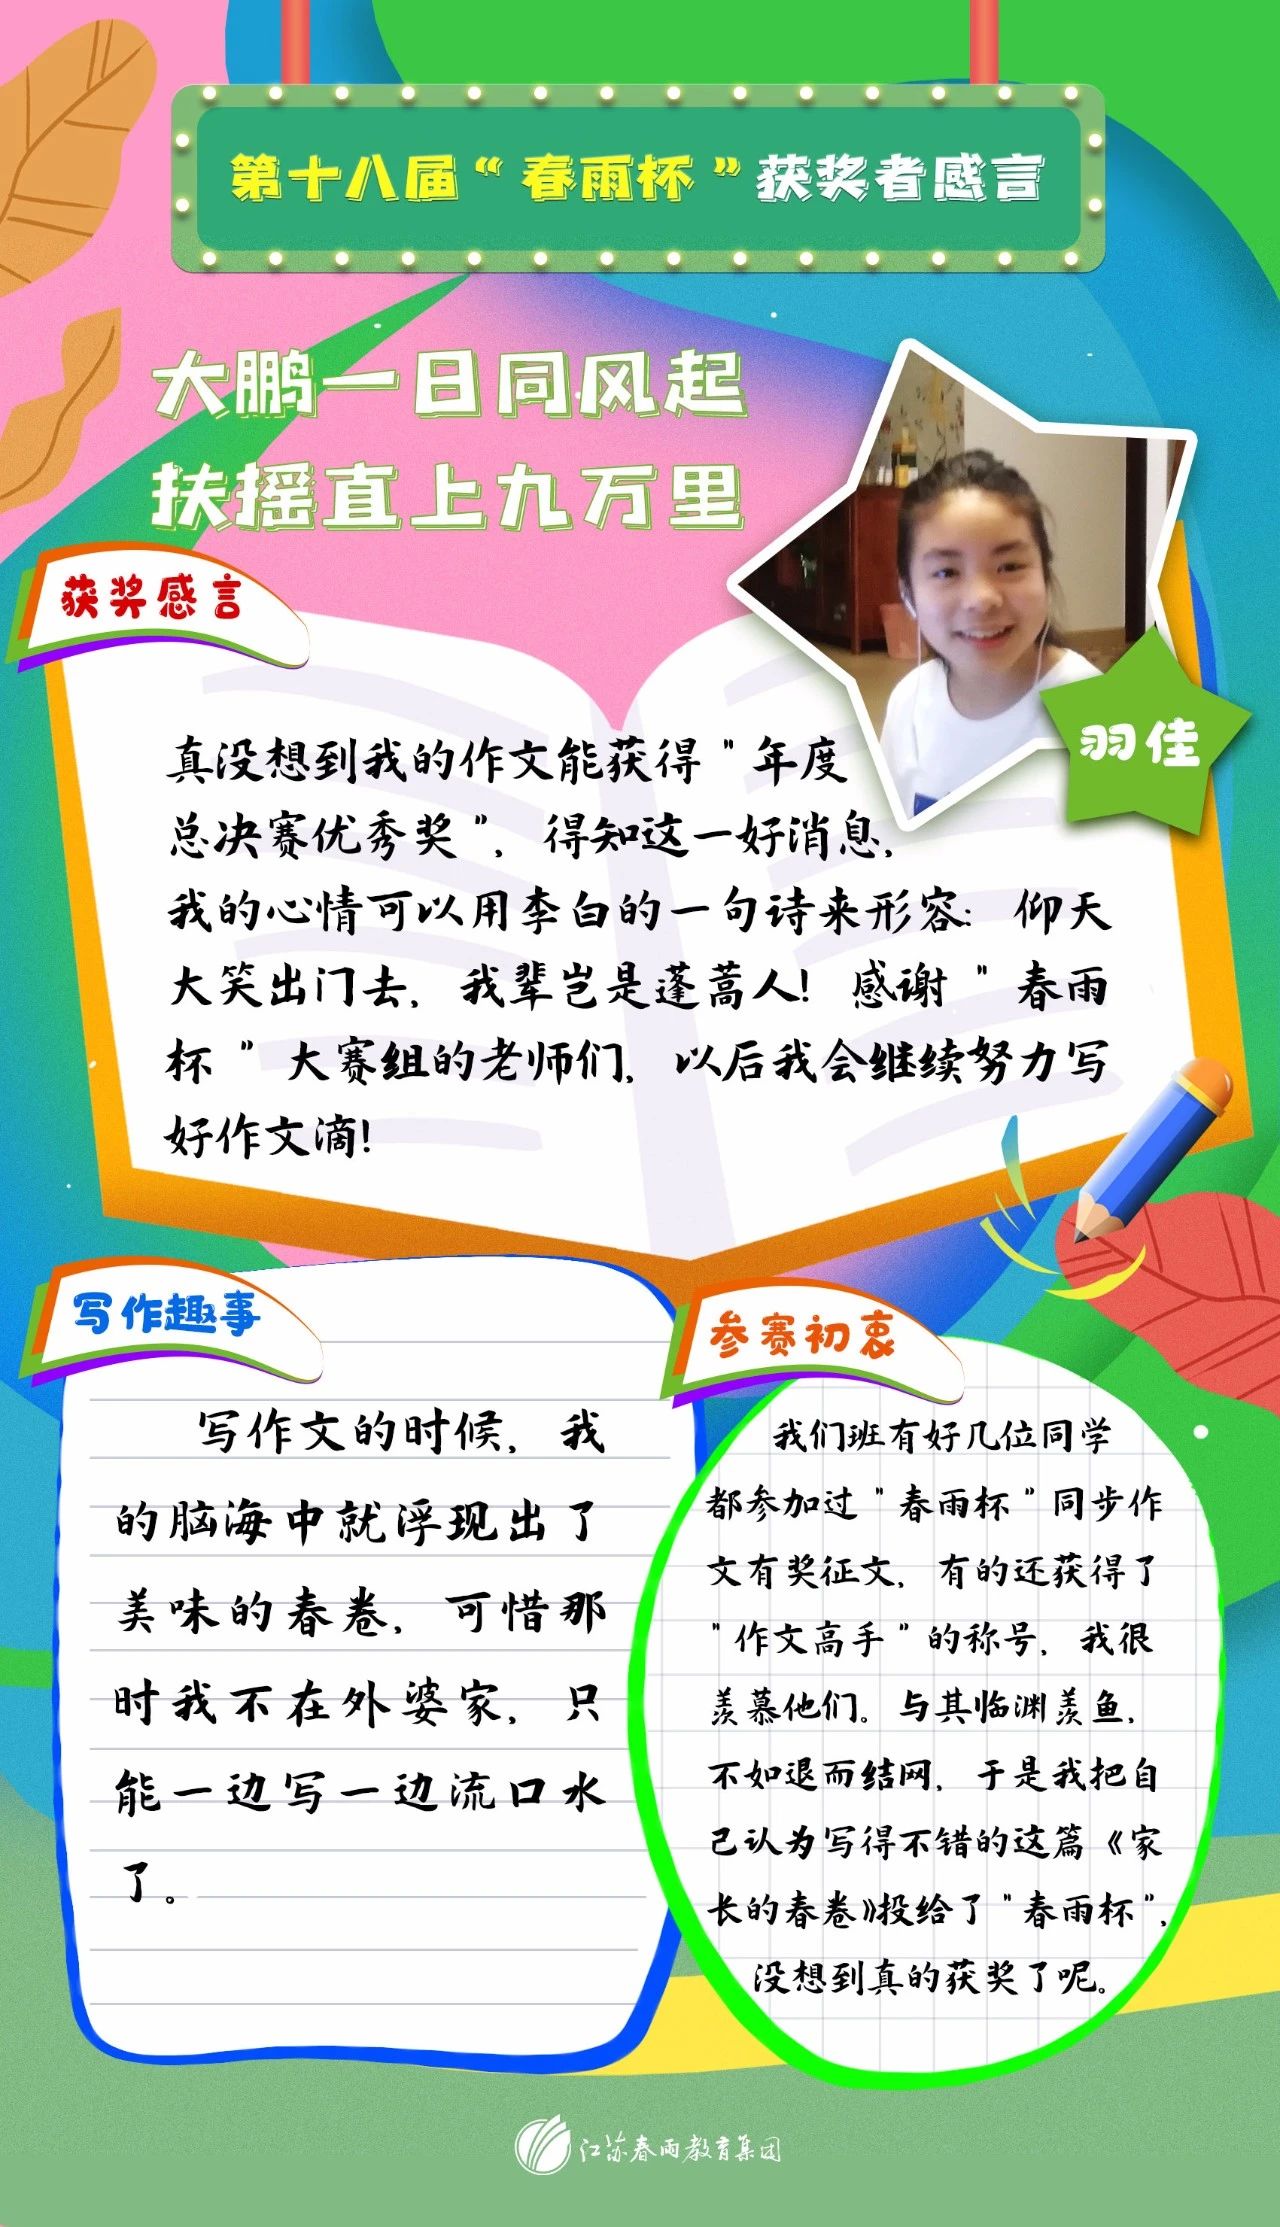 第十八届“春雨杯”获奖者感言
大鹏一日同风起
扶摇直上九万里
羽佳
获奖感言
真没想到我的作文能获得"年度
总决赛优秀奖",得知这一好消息,
我的心情可以用李白的一句诗来形容:仰天
大笑出门去,我辈岂是蓬蒿人!感谢"春雨
杯"大赛组的老师们,以后我会继续努力写
好作文滴!
写作趣事
写作文的时候,我
的脑海中就浮现出了
美味的春卷,可惜那
时我不在外婆家,只
能一边写一边流口水
了。
参赛初衷
我们班有好几位同学
都参加过"春雨杯"同步作
文有奖征文,有的还获得了
"作文高手"的称号,我很
羡慕他们。与其临渊羡鱼,
不如退而结网,于是我把自
己认为写得不错的这篇《家
长的春卷》投给了"春雨杯",
没想到真的获奖了呢。
江苏春雨教育集团